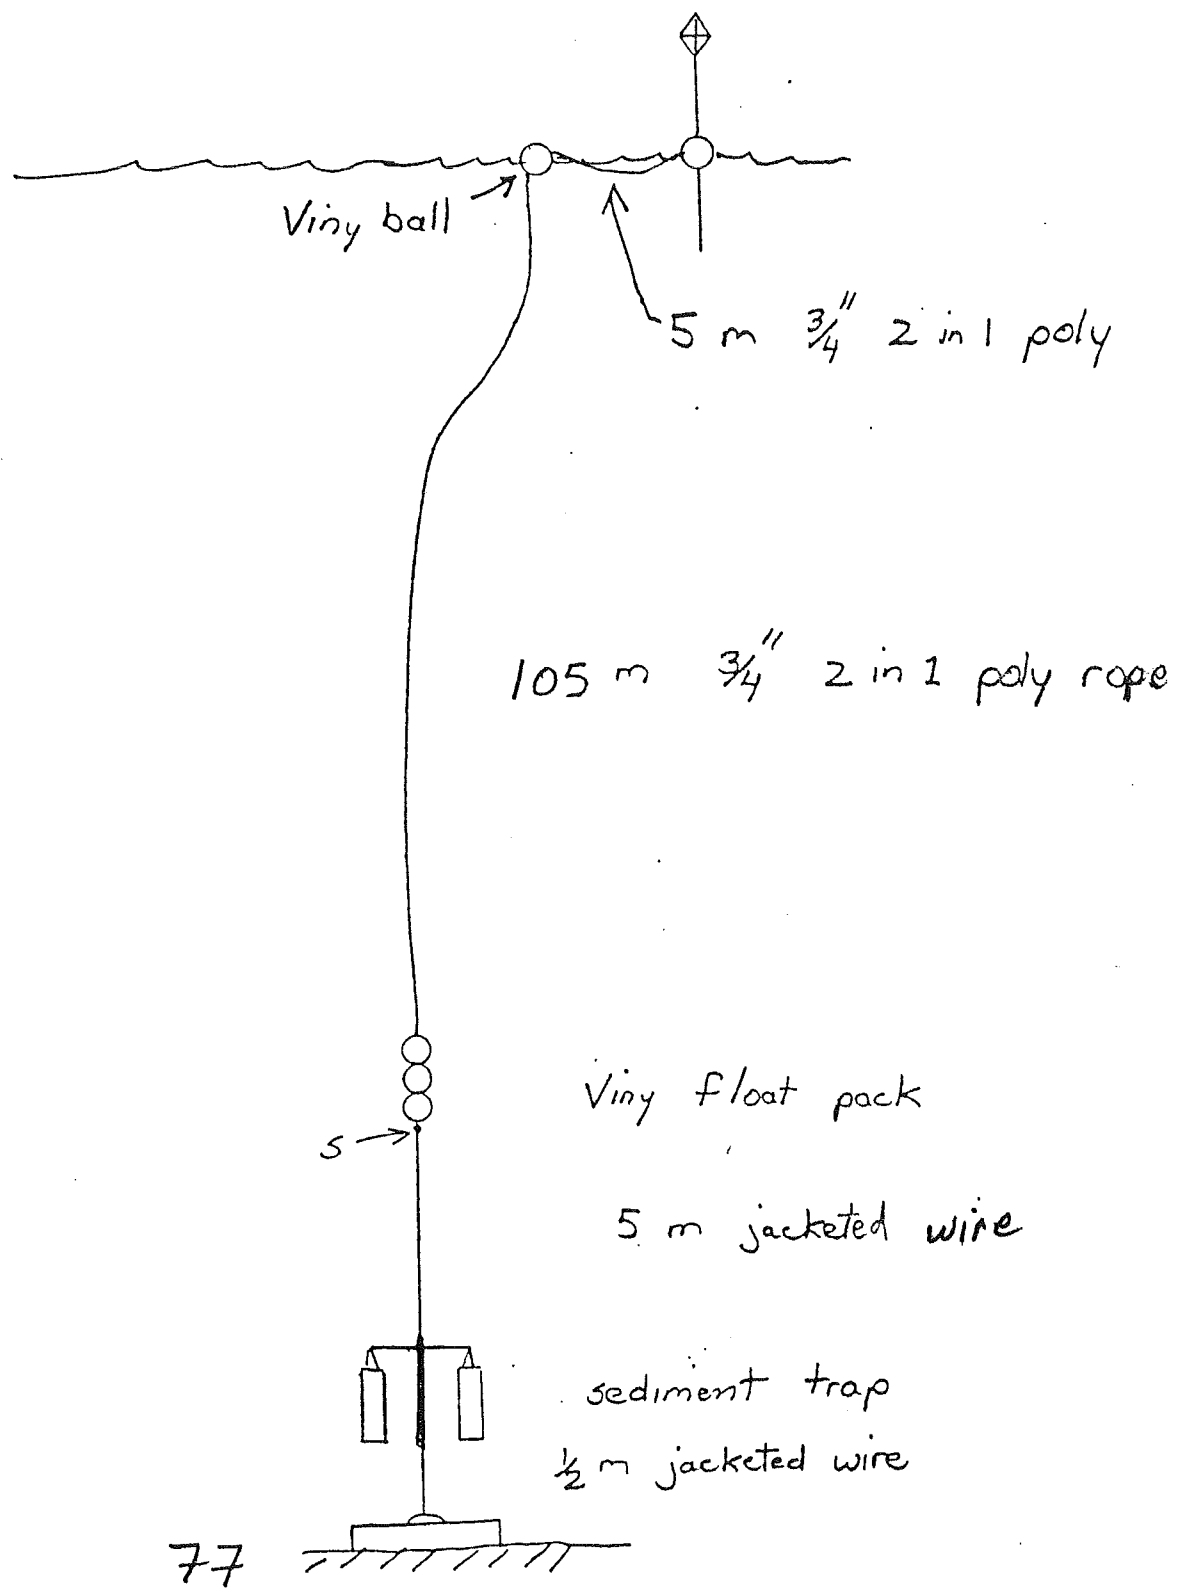 Viny ball
5 m 3/4" 2 in 1 poly
105 m 3/4" 2 in 1 poly rope
Viny float pack
S
5 m jacketed wire
sediment trap
1/2 m jacketed wire
77